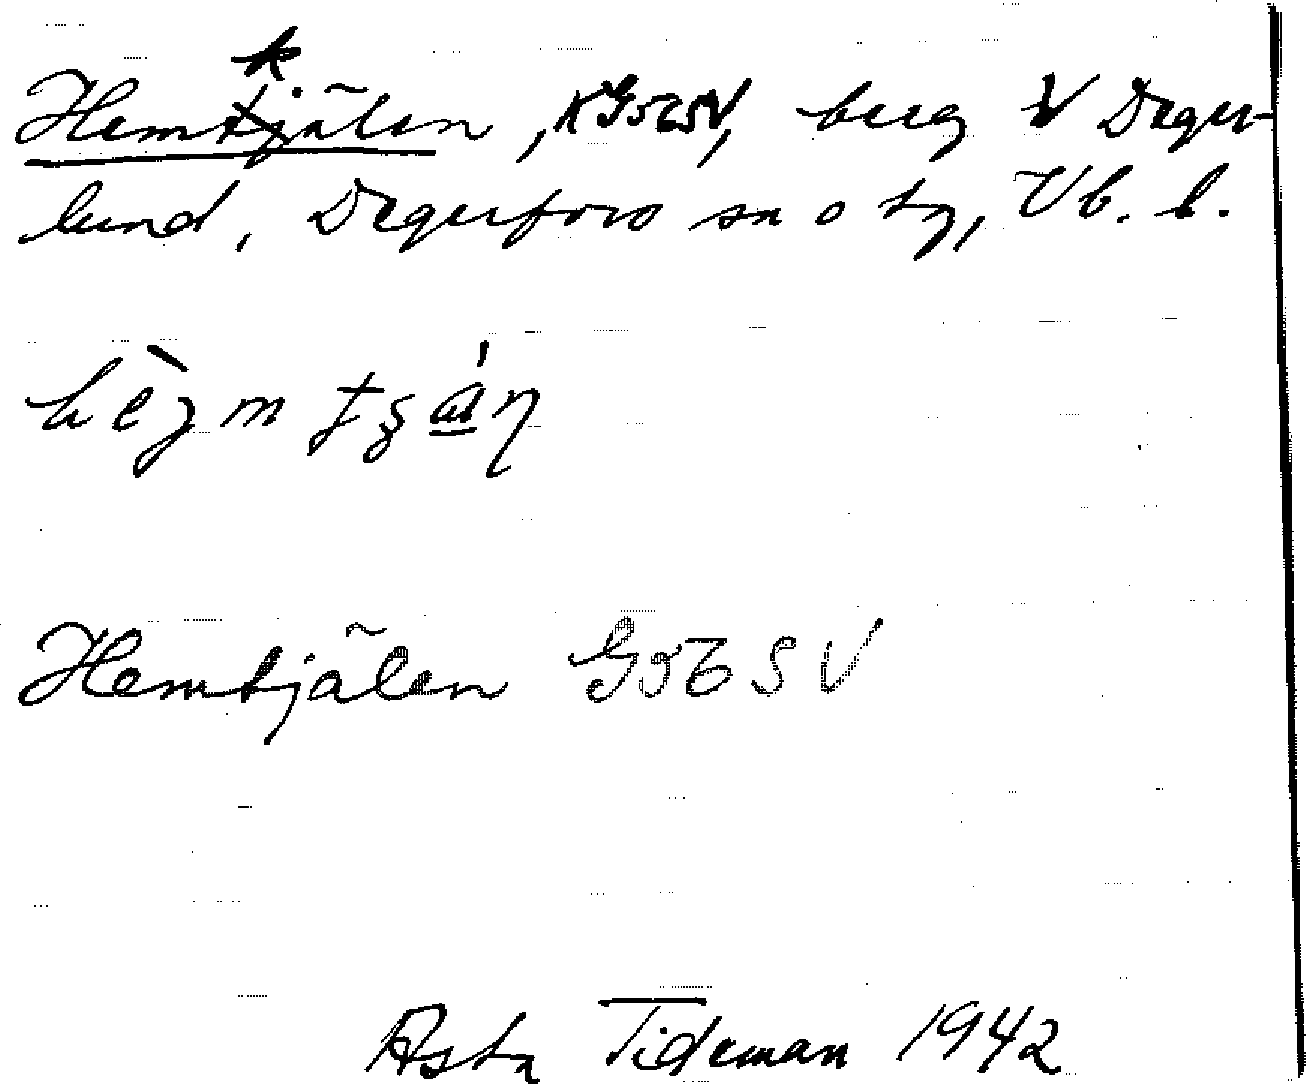 Hemkjälen, K G56SV, berg V Deger-
lund, Degerfors sn o tg, Vb. l.
Hemtjälen G56SV
Asta Tideman 1942